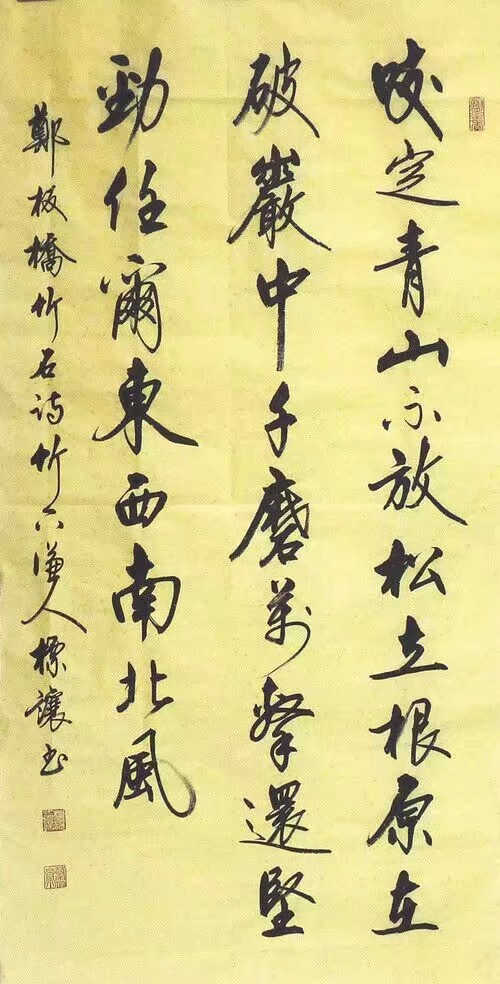 咬定青山不放松立根原在
破巖中千磨萬擊還堅
勁任爾東西南北風
鄭板橋竹石詩竹謙人讓書